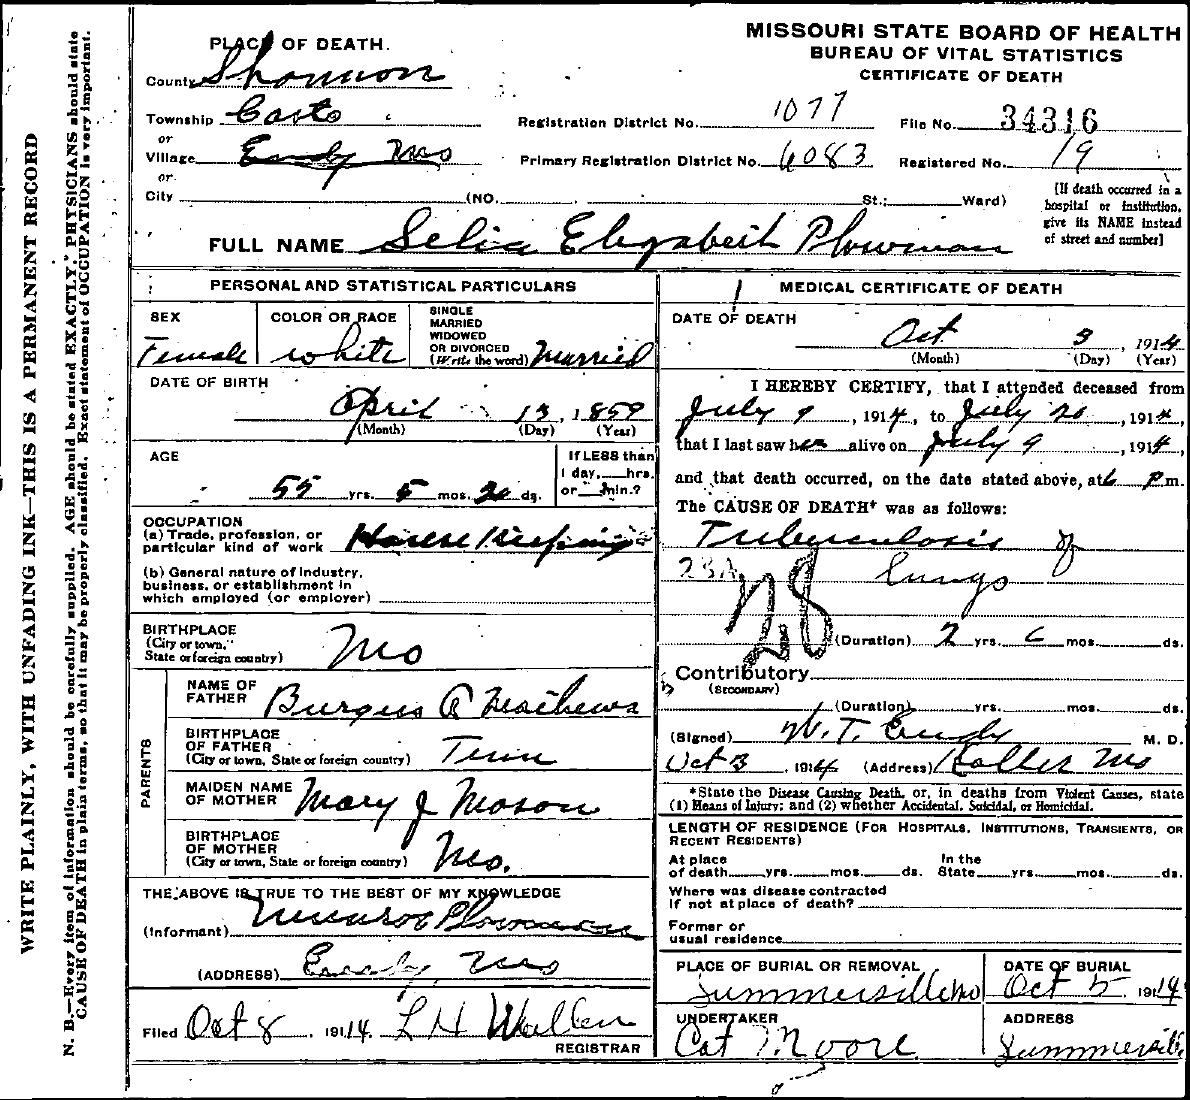 WRITE PLAINLY, WITH UNFADING INK—THIS IS A PERMANENT RECORD
N. B.—Every item of information should be carefully supplied. AGE should be stated EXACTLY. PHYSICIANS should state
CAUSE OF DEATH in plain terms, so that it may be properly classified. Exact statement of OCCUPATION is very important.
MISSOURI STATE BOARD OF HEALTH
BUREAU OF VITAL STATISTICS
CERTIFICATE OF DEATH
PLACE OF DEATH.
County Shannon
Township Casto
or
Village
or
City (NO. St.; Ward)
Registration District No. 1077 File No. 34316
Primary Registration District No. 6083 Registered No. 19
[If death occurred in a
hospital or institution,
give its NAME instead
of street and number]
FULL NAME Selia Elizabeth Plowman
PERSONAL AND STATISTICAL PARTICULARS
SEX
Female
COLOR OR RACE
White
SINGLE
MARRIED
WIDOWED
OR DIVORCED
(Write the word) Married
DATE OF BIRTH
April 13, 1859
(Month) (Day) (Year)
AGE
55 yrs. 5 mos. 20 ds.
If LESS than
1 day, hrs.
or min.?
OCCUPATION
(a) Trade, profession, or
particular kind of work House Keeping
(b) General nature of industry,
business, or establishment in
which employed (or employer)
BIRTHPLACE
(City or town,
State or foreign country) Mo
PARENTS
NAME OF
FATHER Burgus A Mathews
BIRTHPLACE
OF FATHER
(City or town, State or foreign country) Tenn
MAIDEN NAME
OF MOTHER Mary J Mason
BIRTHPLACE
OF MOTHER
(City or town, State or foreign country) Mo.
THE ABOVE IS TRUE TO THE BEST OF MY KNOWLEDGE
(Informant) Munroe Plowman
(ADDRESS) Mo
Filed Oct 8, 1914. L H Wallen
REGISTRAR
MEDICAL CERTIFICATE OF DEATH
DATE OF DEATH
Oct 3, 1914
(Month) (Day) (Year)
I HEREBY CERTIFY, that I attended deceased from
July 9, 1914, to July 20, 1914,
that I last saw her alive on July 9, 1914,
and that death occurred, on the date stated above, at 6 P m.
The CAUSE OF DEATH* was as follows:
Tuberculosis of
23A lungs
28
(Duration) 2 yrs. 6 mos. ds.
Contributory
(SECONDARY)
(Duration) yrs. mos. ds.
(Signed) W. T. Eudy M. D.
Oct 3, 1914 (Address) Mo
*State the Disease Causing Death, or, in deaths from Violent Causes, state
(1) Means of Injury; and (2) whether Accidental, Suicidal, or Homicidal.
LENGTH OF RESIDENCE (FOR HOSPITALS, INSTITUTIONS, TRANSIENTS, OR
RECENT RESIDENTS)
At place In the
of death yrs. mos. ds. State yrs. mos. ds.
Where was disease contracted
If not at place of death?
Former or
usual residence
PLACE OF BURIAL OR REMOVAL
Summersville Mo
DATE OF BURIAL
Oct 5 1914
UNDERTAKER
Cat Moore
ADDRESS
Summersville